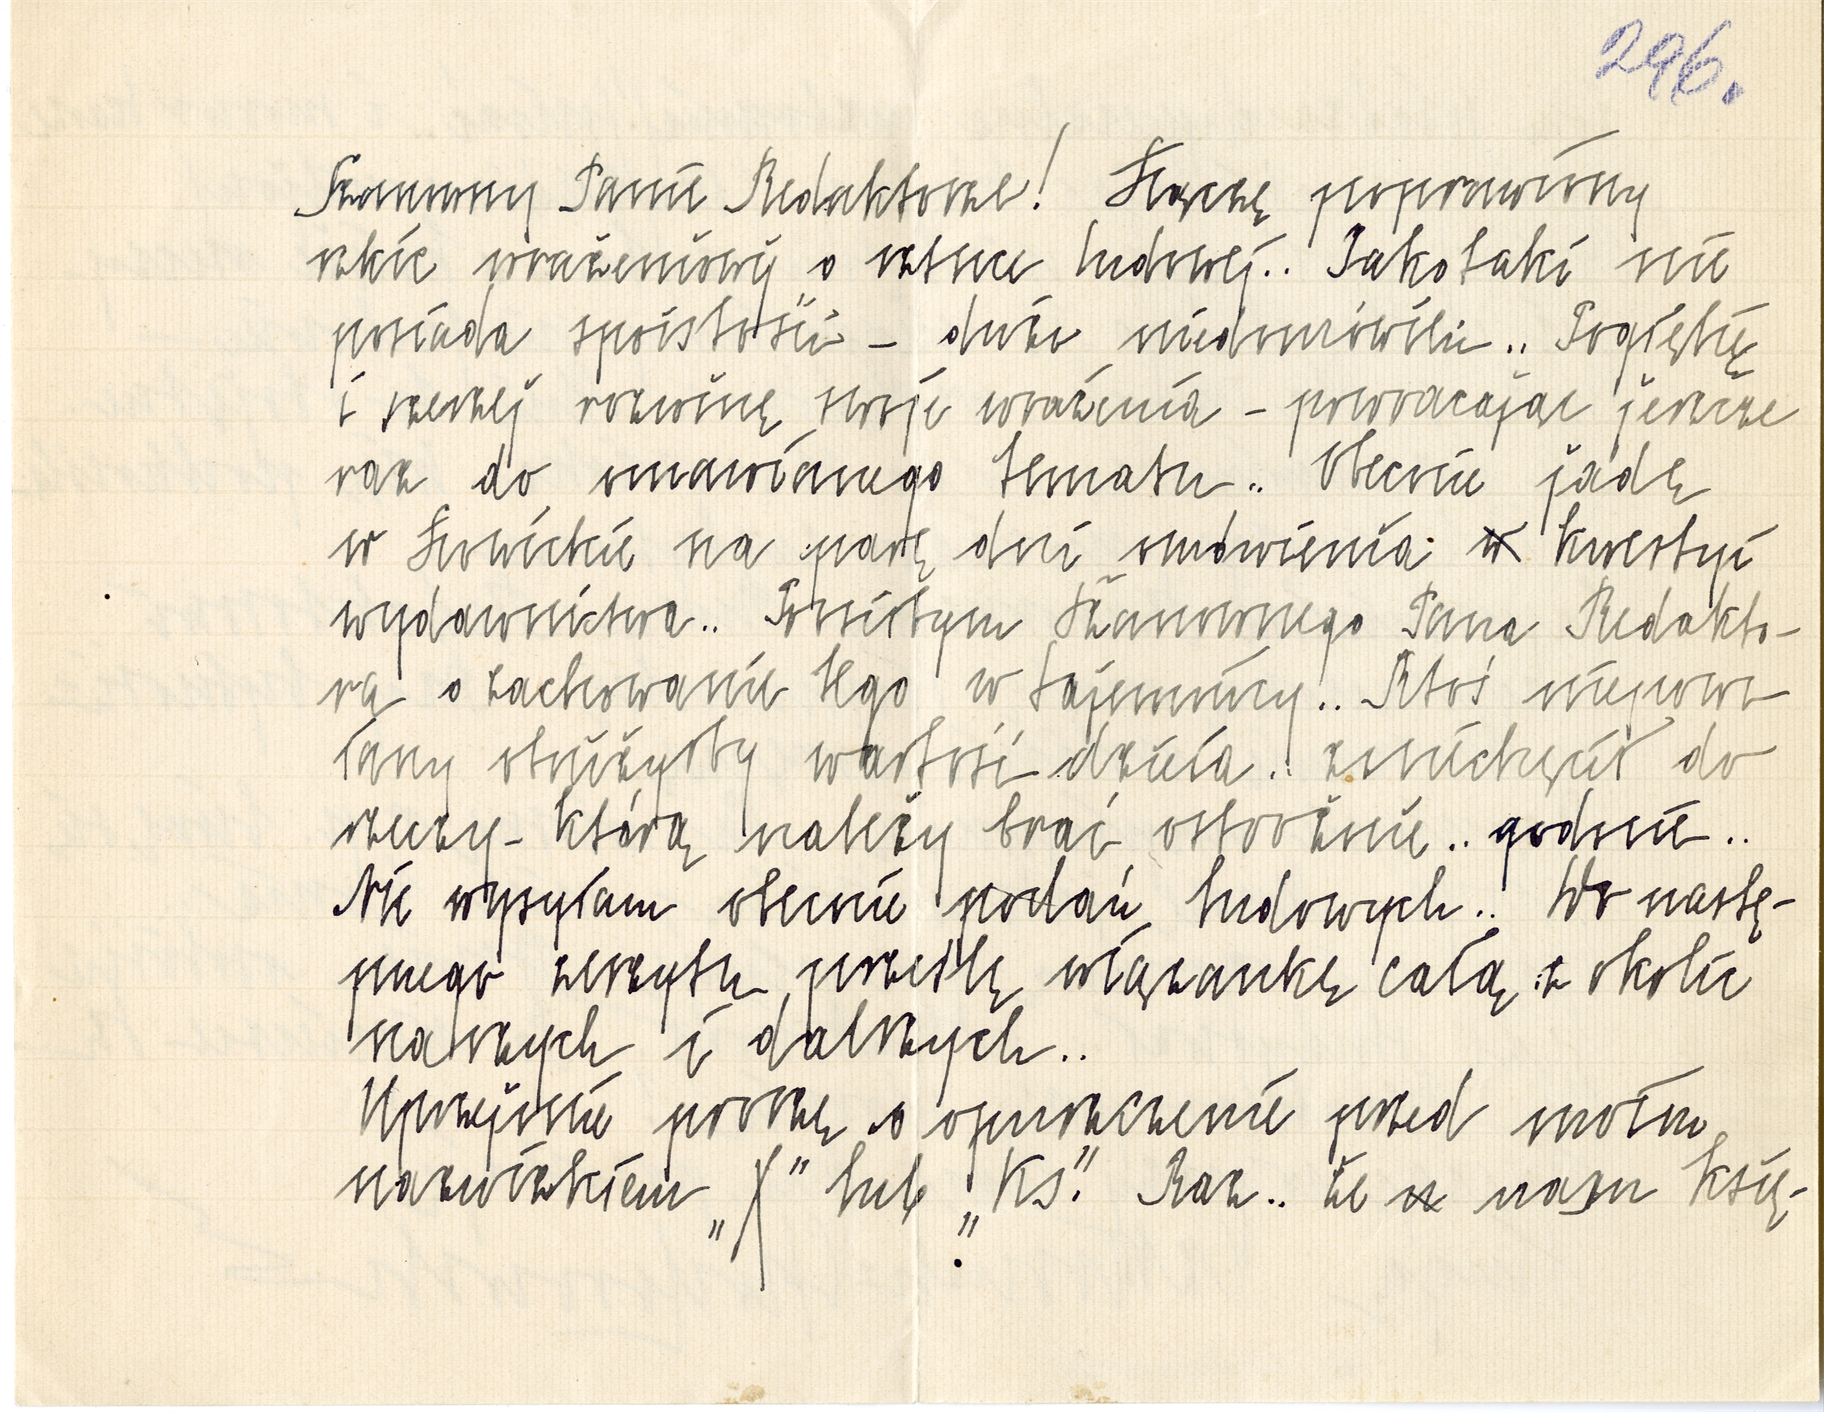 296.
Szanowny Panie Redaktorze! Łączę poprawiony
szkic wrażeniowy o sztuce ludowej.. Jako taki nie
posiada spoistości – dużo niedomówień.. Pogłębię
i szerzej rozwinę swoje wrażenia – powracając jeszcze
raz do omawianego tematu.. Obecnie jadę
w Łowickie na parę dni omówienia kwestyi
wydawnictwa.. Prosiłbym Szanownego Pana Redakto-
ra o zachowanie tego w tajemnicy.. Ktoś niepowo
łany obniżyłby wartość dzieła.. zniechęcił do
rzeczy – którą należy brać ostrożnie.. godnie..
Nie wysyłam obecnie podań ludowych.. Do nastę-
pnego zeszytu prześlę wiązankę całą z okolic
naszych i dalszych..
Uprzejmie proszę o opuszczenie przed moim
nazwiskiem „X" lub „Ks." Raz.. że w naszu Księ-